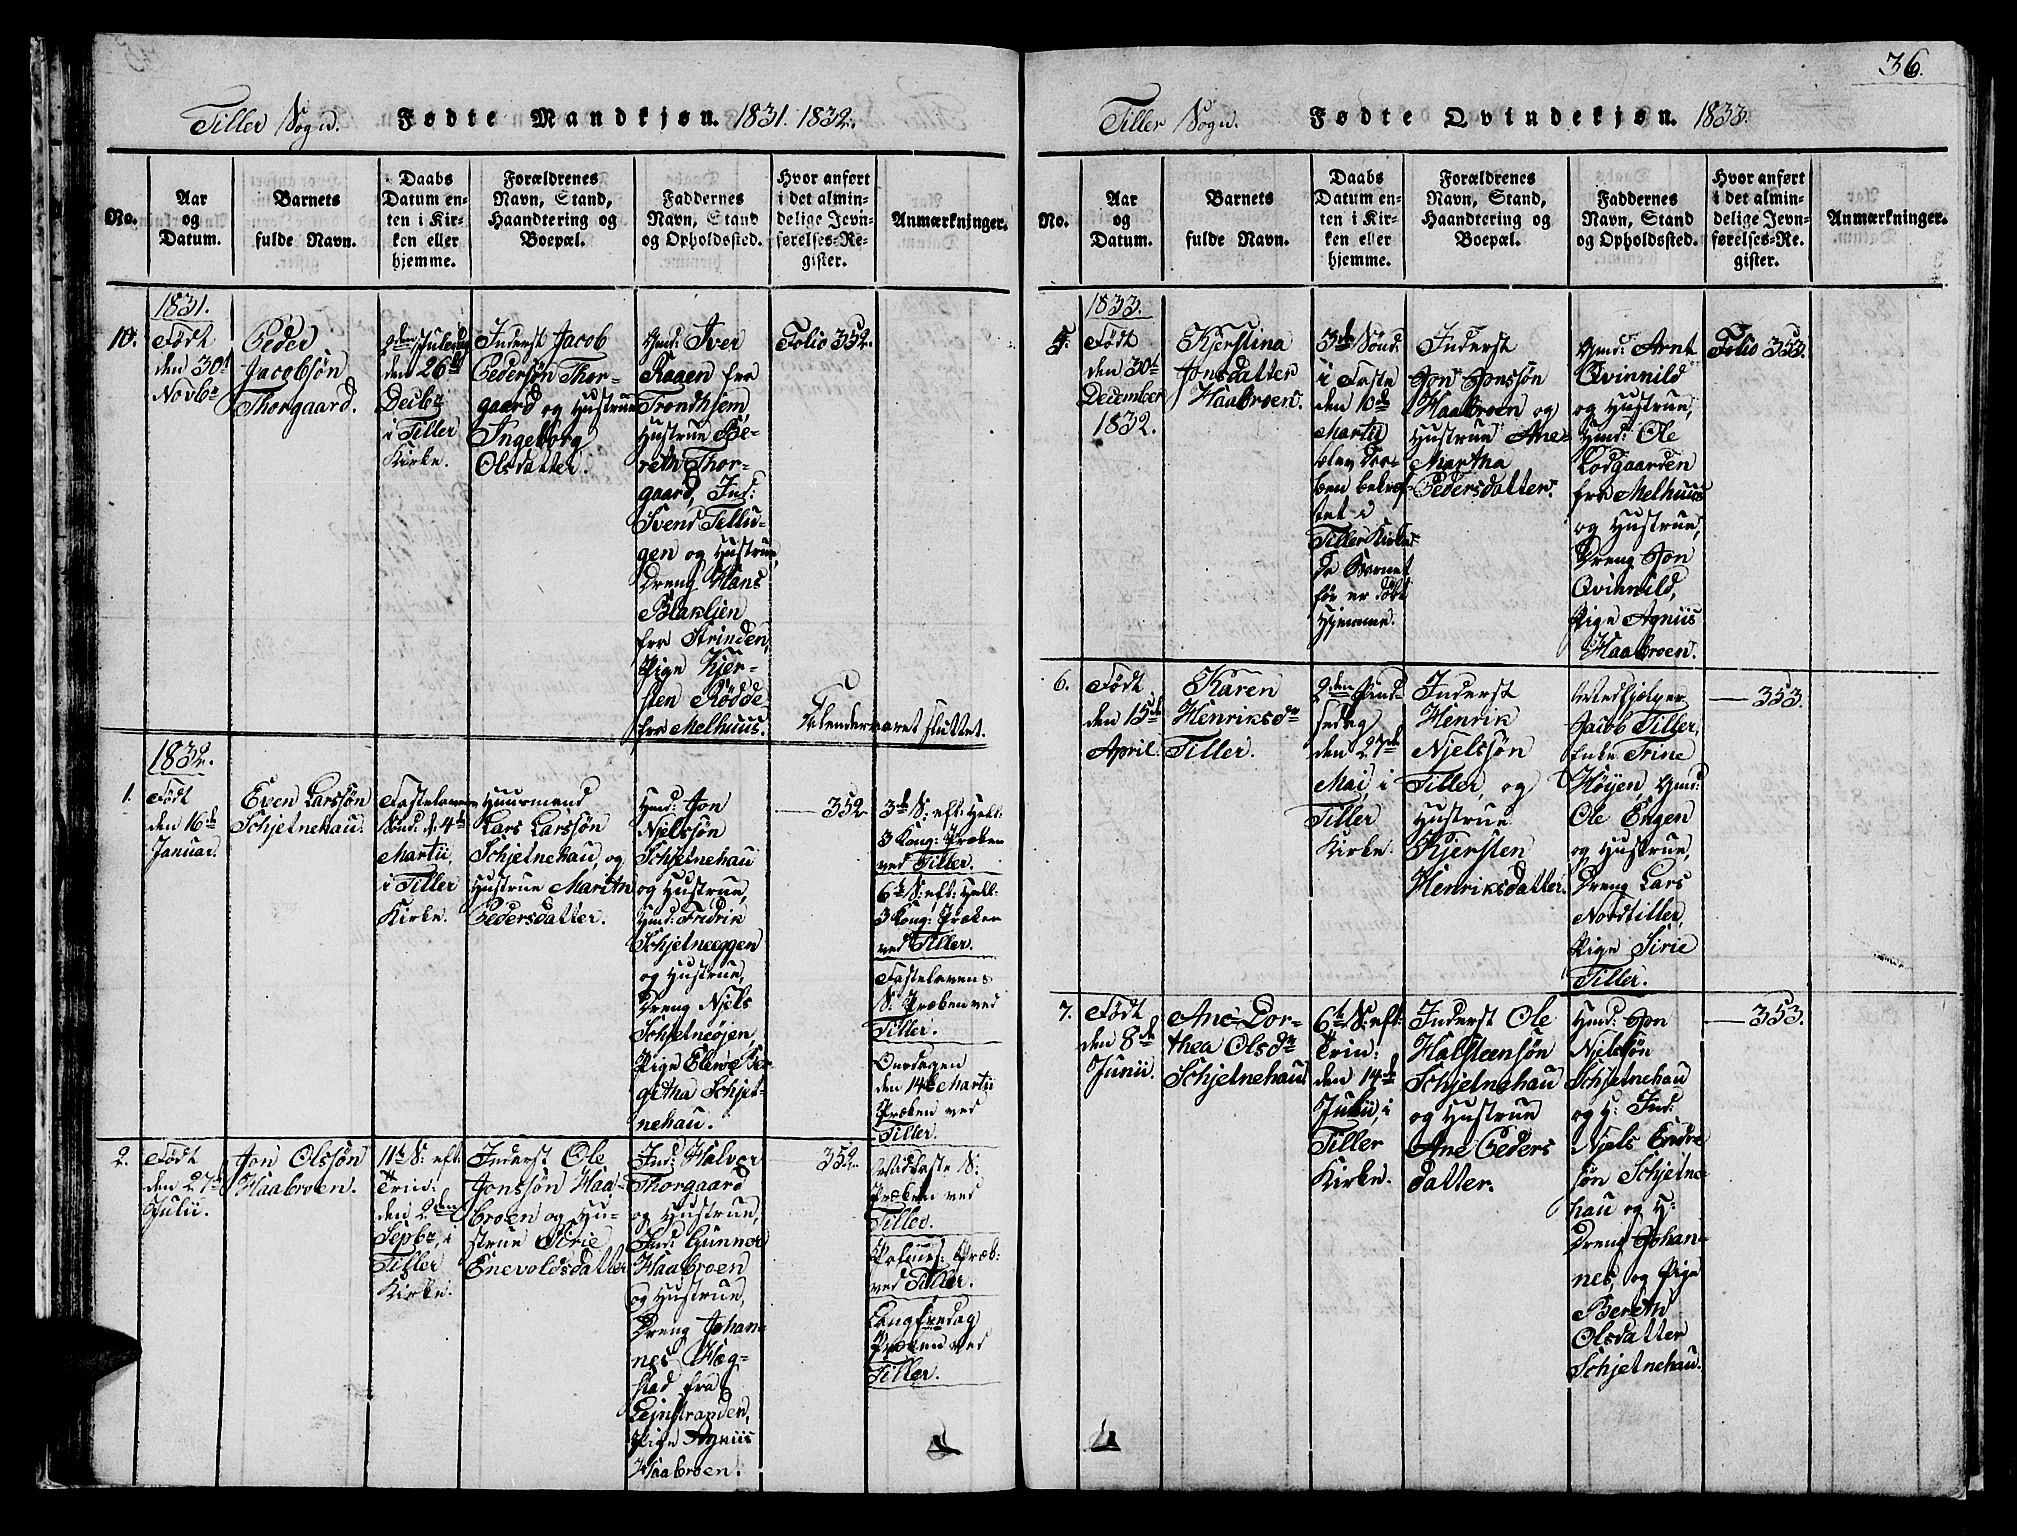 Tiller Sogn. Fødte Mandkjøn. 1831. 1832.
No.
Aar
og
Datum.
Barnets
fulde Navn.
Daabs
Datum en-
ten i Kir-
ken eller
hjemme.
Forældrenes
Navn, Stand,
Haandtering og
Boepæl.
Faddernes
Navn, Stand
og Opholdssted.
Hvor anført
i det almin-
delige Jevn-
førelses-Re-
gister.
Anmærkninger.
1831.
10.
Født
den 30t
Novbr
Peder
Jacobsøn
Thorgaard.
2den Juledag
den 26de
Decbr
i Tiller
Kirke.
Inderst Jacob
Pedersøn Thor-
gaard og Hustrue
Ingeborg
Olsdatter.
Gmd: Iver
Raaen fra
Trondhjem,
Hustrue Be-
reth Thor-
gaard, Ind:
Svend Tillu-
gen og Hustrue,
Dreng Hans
Blaklien
fra Strinden,
Pige Kjer-
sten Rødde
fra Melhuus.
Folio 352.
Kalenderaaret sluttet.
1832.
1.
Født
den 16de
Januar.
Even Larssøn
Schjetnehau.
Fastelavns
Sønd: d. 4de
Martii,
i Tiller
Kirke.
Huusmand
Lars Larssøn
Schjetnehau, og
Hustrue Marith
Pedersdatter.
Hmd: Jon
Njelssøn
Schjetnehau
og Hustrue,
Hmd: Fridrik
Schjetneeggen
og Hustrue,
Dreng Njels
Schjetneøjen,
Pige Elen
Schjet-
nehau.
352
3de S: eft: Hell:
3 Kong: Præken
ved Tiller.
6te S: eft: Hell:
3 Kong: Præken
ved Tiller.
Fastelavens
S: Præken ved
Tiller.
Onsdagen
den 14de Martii
Præken ved
Tiller.
Midfaste S:
Præken ved
Tiller.
Palmes: Præk:
ved Tiller.
Langfredag
Præken ved
Tiller.
2.
Født
den 27de
Julii.
Jon Olssøn
Haabroen.
11te S: eft:
Trin:
den 2den
Sepbr, i
Tiller
Kirke.
Inderst Ole
Jonssøn Haa-
broen og Hu-
strue Sirie
Enevoldsdatter
Ind: Halvor
Thorgaard
og Hustrue,
Ind: Gunner
Haabroen
og Hustrue,
Dreng Johan-
nes Hæg-
stad fra
Lejnstranden,
Pige Agniis
Haabroen.
352.
36.
Tiller Sogn. Fødte Qvindekjøn. 1833.
No.
Aar
og
Datum.
Barnets
fulde Navn.
Daabs
Datum en-
ten i Kir-
ken eller
hjemme.
Forældrenes
Navn, Stand,
Haandtering og
Boepæl.
Faddernes
Navn, Stand
og Opholdssted.
Hvor anført
i det almin-
delige Jevn-
førelses-Re-
gister.
Anmærkninger.
1833.
5.
Født
den 30t
December
1832.
Kjerstina
Jonsdatter
Haabroen.
3de Sønd:
i Faste
den 10de
Martii
blev Daa-
ben bekræf-
tet i
Tiller Kirke
Da Barnet
før er døbt
Hjemme.
Inderst
Jon Jonssøn
Haabroen og
Hustrue Ane
Martha
Pedersdatter.
Gmd: Arnt
Qvinnild
og Hustrue,
Gmd: Ole
Lodgaarden
fra Melhuus
og Hustrue,
Dreng Jon
Qvinnild,
Pige Agniis
Haabroen.
Folio 353.
6.
Født
den 15de
April.
Karen
Henriksdr
Tiller.
2den Pind-
sedag
den 27de
Mai, i
Tiller
Kirke.
Inderst
Henrik
Njelssøn
Tiller, og
Hustrue
Kjersten
Henriksdatter.
Medhjelper
Jacob Tiller,
Enke Trine
Høyen, Gmd:
Ole Engen
og Hustrue,
Dreng Lars
Nordtiller,
Pige Sirie
Tiller.
353.
7.
Født
den 8de
Junii.
Ane Dor-
thea Olsdr
Schjetnehau
6te S: eft:
Trin:
den 14de
Julii, i
Tiller
Kirke.
Inderst Ole
Halsteensøn
Schjetnehau
og Hustrue
Ane Peders
datter.
Hmd: Jon
Njelssøn
Schjetnehau
og H: Ind:
Njels Endre
søn Schjetne-
hau og H:
Dreng Johan-
nes, og Pige
Bereth
Olsdatter
Schjetnehau.
353.